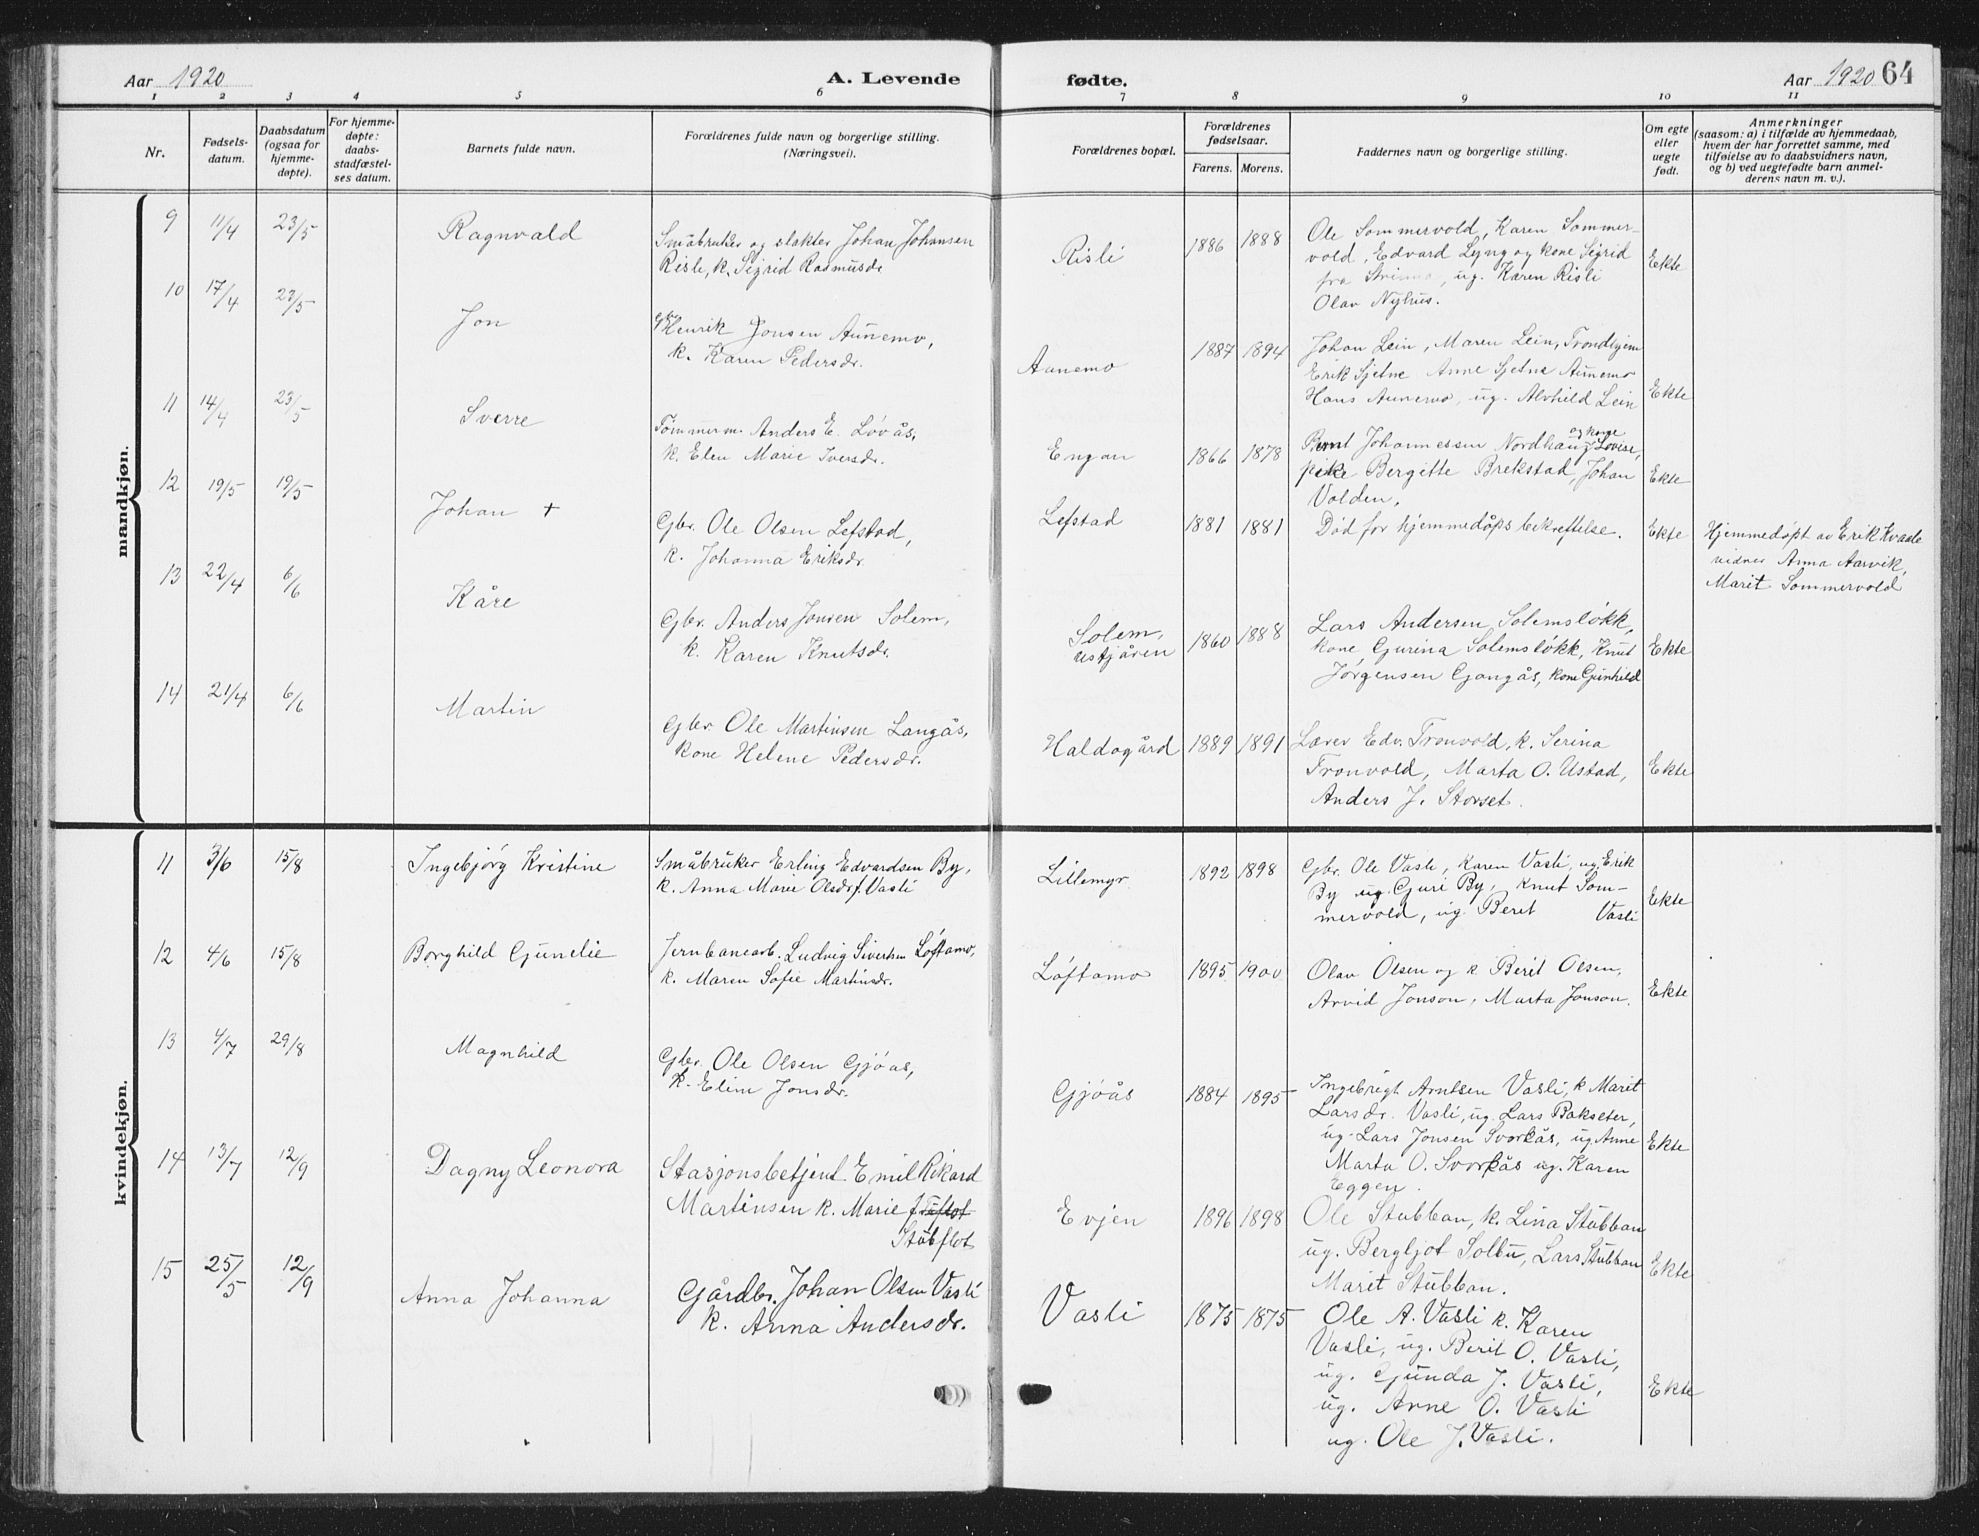 Aar 1920
A. Levende
fødte.
Aar 1920 64
1 2 3 4 5 6 7 8 9 10 11
Nr.
Fødsels-
datum.
Daabsdatum
(ogsaa for
hjemme-
døpte).
For hjemme-
døpte:
daabs-
stadfæstel-
ses datum.
Barnets fulde navn.
Forældrenes fulde navn og borgerlige stilling.
(Næringsvei).
Forældrenes bopæl.
Forældrenes
fødselsaar.
Farens. Morens.
Faddernes navn og borgerlige stilling.
Om egte
eller
uegte
født.
Anmerkninger
(saasom: a) i tilfælde av hjemmedaab,
hvem der har forrettet samme, med
tilføielse av to daabsvidners navn,
og b) ved uegtefødte barn anmel-
derens navn m. v.).
mandkjøn.
9 11/4 23/5 Ragnvald
Småbruker og slakter Johan Johansen
Risli, k. Sigrid Rasmusdr
Risli 1886 1888
Ole Sommervold, Karen Sommer-
vold, Edvard Lyng og kone Sigrid
fra Strinna, ug. Karen Risli
Olav Nyhus.
Ekte
10 17/4 23/5 Jon
Henrik Jonsen Aunemo,
k. Karen Pedersdr.
Aunemo 1887 1894
Johan Lein, Maren Lein, Trondhjem
Erik Sjetne Anne Sjetne Aunemo
Hans Aunemo, ug. Alvhild Lein
Ekte
11 14/4 23/5 Sverre
Tømmerm. Anders E. Løvås,
k. Elen Marie Iversdr.
Engan 1866 1878
og kone
Bernt Johannessen Nordhaug Lovise,
pike Bergitte Brekstad, Johan
Volden,
Ekte
12 19/5 19/5 Johan +
Gbr. Ole Olsen Lefstad,
k. Johanna Eriksdr.
Lefstad 1881 1881
Død før hjemmedåps bekreftelse.
Ekte
Hjemmedøpt av Erik Kvaale
vidner Anna Aarvik,
Marit Sommervold
13 22/4 6/6 Kåre
Gbr. Anders Jonsen Solem,
k. Karen Knutsdr.
Solem,
Ustjåren 1860 1888
Lars Andersen Solemsløkk,
kone Gurina Solemsløkk, Knut
Jørgensen Gangås, kone Gunhild
Ekte
14 21/4 6/6 Martin
Gbr. Ole Martinsen Langås,
kone Helene Pedersdr.
Haldogård 1889 1891
Lærer Edv. Tronvold, k. Serina
Tronvold, Marta O. Ustad,
Anders J. Storset.
Ekte
kvindekjøn.
11 3/6 15/8 Ingebjørg Kristine
Småbruker Erling Edvardsen By,
k. Anna Marie Olsdr f. Vasli
Lillemyr 1892 1898
Gbr. Ole Vasli, Karen Vasli, ug Erik
By ug. Guri By, Knut Som-
mervold, ug. Beret Vasli
Ekte
12 4/6 15/8 Borghild Gunelie
Jernbanearb. Ludvig Sivertsen Løftamo,
k. Maren Sofie Martinsdr.
Løftamo 1895 1900
Olav Olsen og k. Berit Olsen,
Arvid Jonson, Marta Jonson.
Ekte
13 4/7 29/8 Magnhild
Gbr. Ole Olsen Gjøås,
k. Elin Jonsdr.
Gjøås 1884 1895
Ingebrigt Arntsen Vasli, k Marit
Larsdr. Vasli, ug. Lars Bakseter,
ug. Lars Jonsen Svorkås, ug Anne
Marta O. Svorkås ug. Karen
Eggen.
Ekte
14 13/7 12/9 Dagny Leonora
Stasjonsbetjent Emil Rikard
Martinsen k. Marie f.
Stubflot
Evjen 1896 1898
Ole Stubban, k. Lina Stubban
ug. Bergljot Solbu, Lars Stubban
Marit Stubban.
Ekte
15 25/5 12/9 Anna Johanna
Gårdbr. Johan Olsen Vasli
k. Anna Andersdr.
Vasli 1875 1875
Ole A. Vasli k. Karen
Vasli, ug. Berit O. Vasli,
ug. Gunda J. Vasli,
ug. Arne O. Vasli
ug. Ole J. Vasli.
Ekte